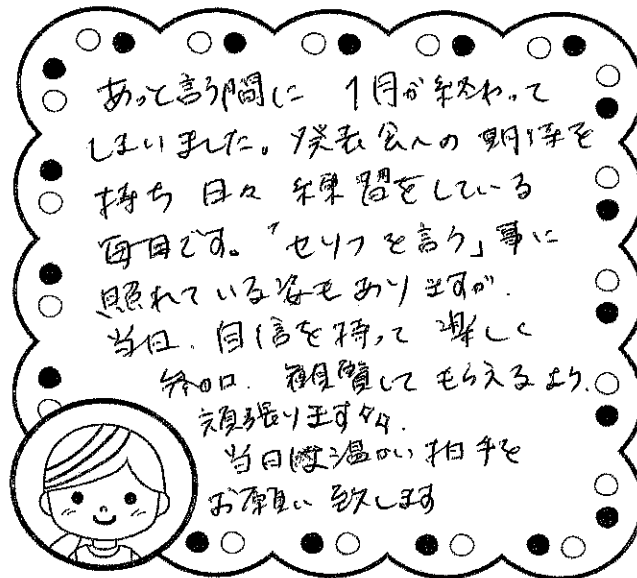 あっと言う間に 1月が終わって
しまいました。発表会への期待を
持ち 日々 練習をしている
毎日です。「セリフを言う」事に
照れている姿も ありますが、
当日、自信を持って 楽しく
観覧して もらえるよう、
頑張ります
当日は温かい拍手を
お願い致します